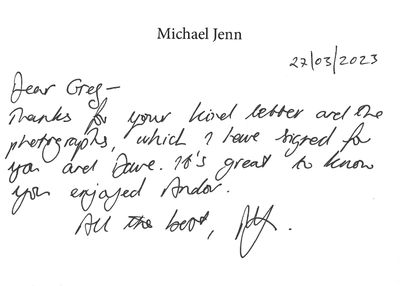 Michael Jenn
27/03/2023
Dear Greg—
Thanks for your kind letter and the
photographs, which I have signed for
you and Dave. It's great to know
you enjoyed Andor.
All the best,